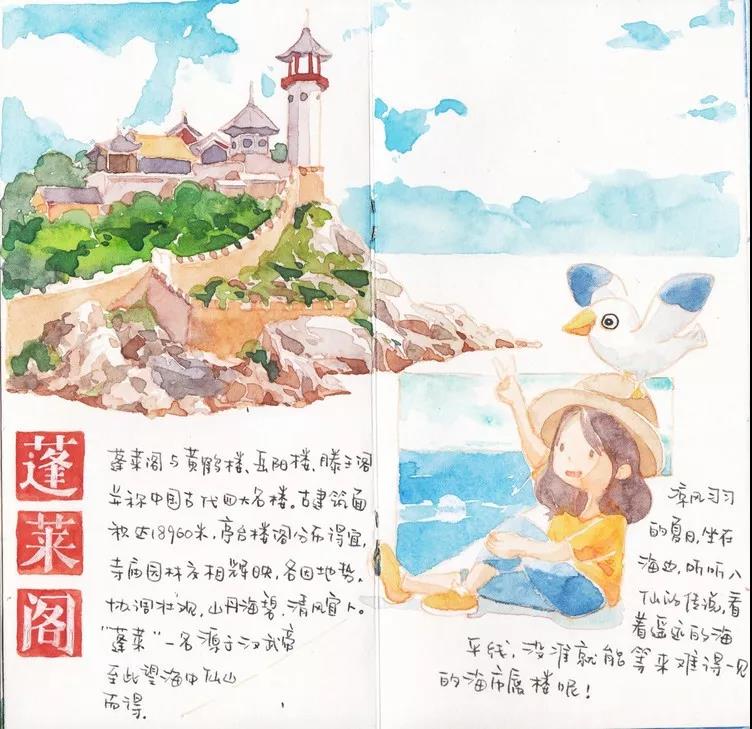 蓬莱阁
蓬莱阁与黄鹤楼、岳阳楼、滕王阁
并称中国古代四大名楼。古建筑面
积达18960米,亭台楼阁分布得宜,
寺庙园林交相辉映,各因地势,
协调壮观,山丹海碧,清风宜人。
"蓬莱"一名源于汉武帝
至此望海中仙山
而得.
凉风习习
的夏日,坐在
海边,听听八
仙的传说,看
着遥远的海
平线,没准就能等来难得一见
的海市蜃楼呢!